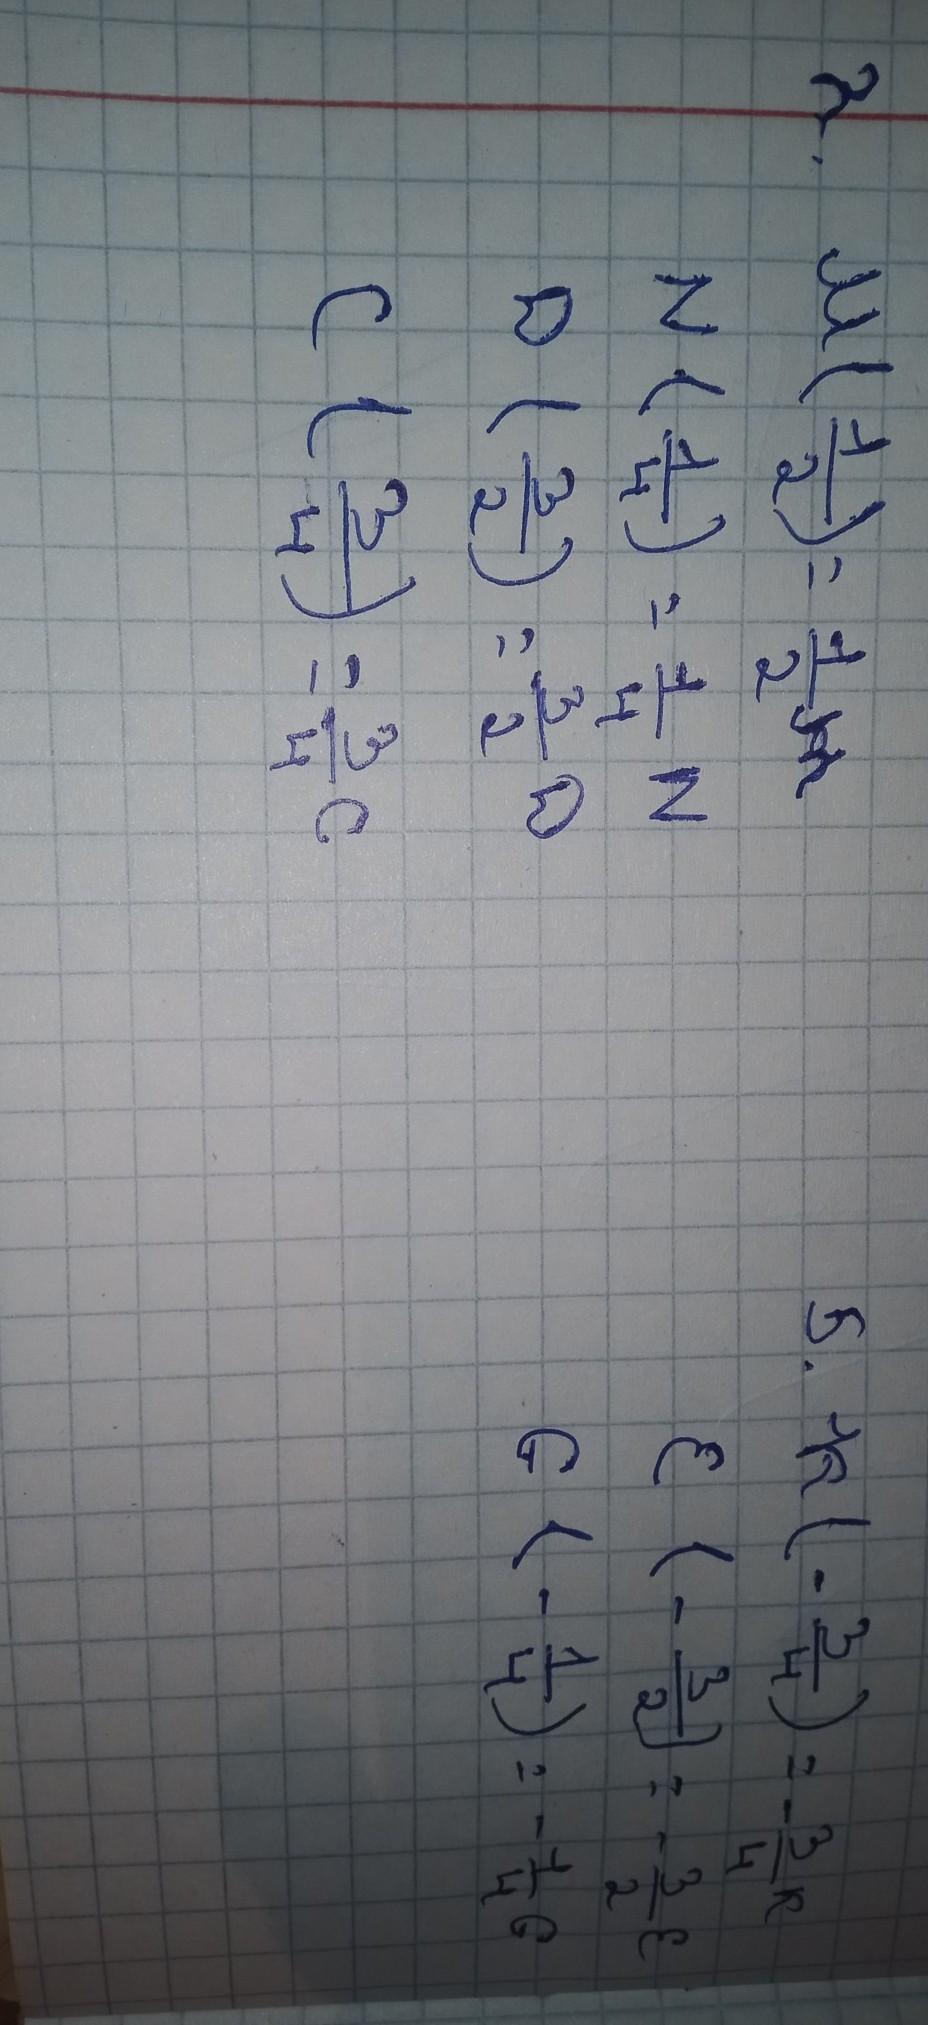 2. M (1/2) = 1/2 M
N (1/4) = 1/4 N
D (3/2) = 3/2 D
C (3/4) = 3/4 C
5. K (- 3/4) = - 3/4 K
E (- 3/2) = - 3/2 E
G (- 1/4) = - 1/4 G